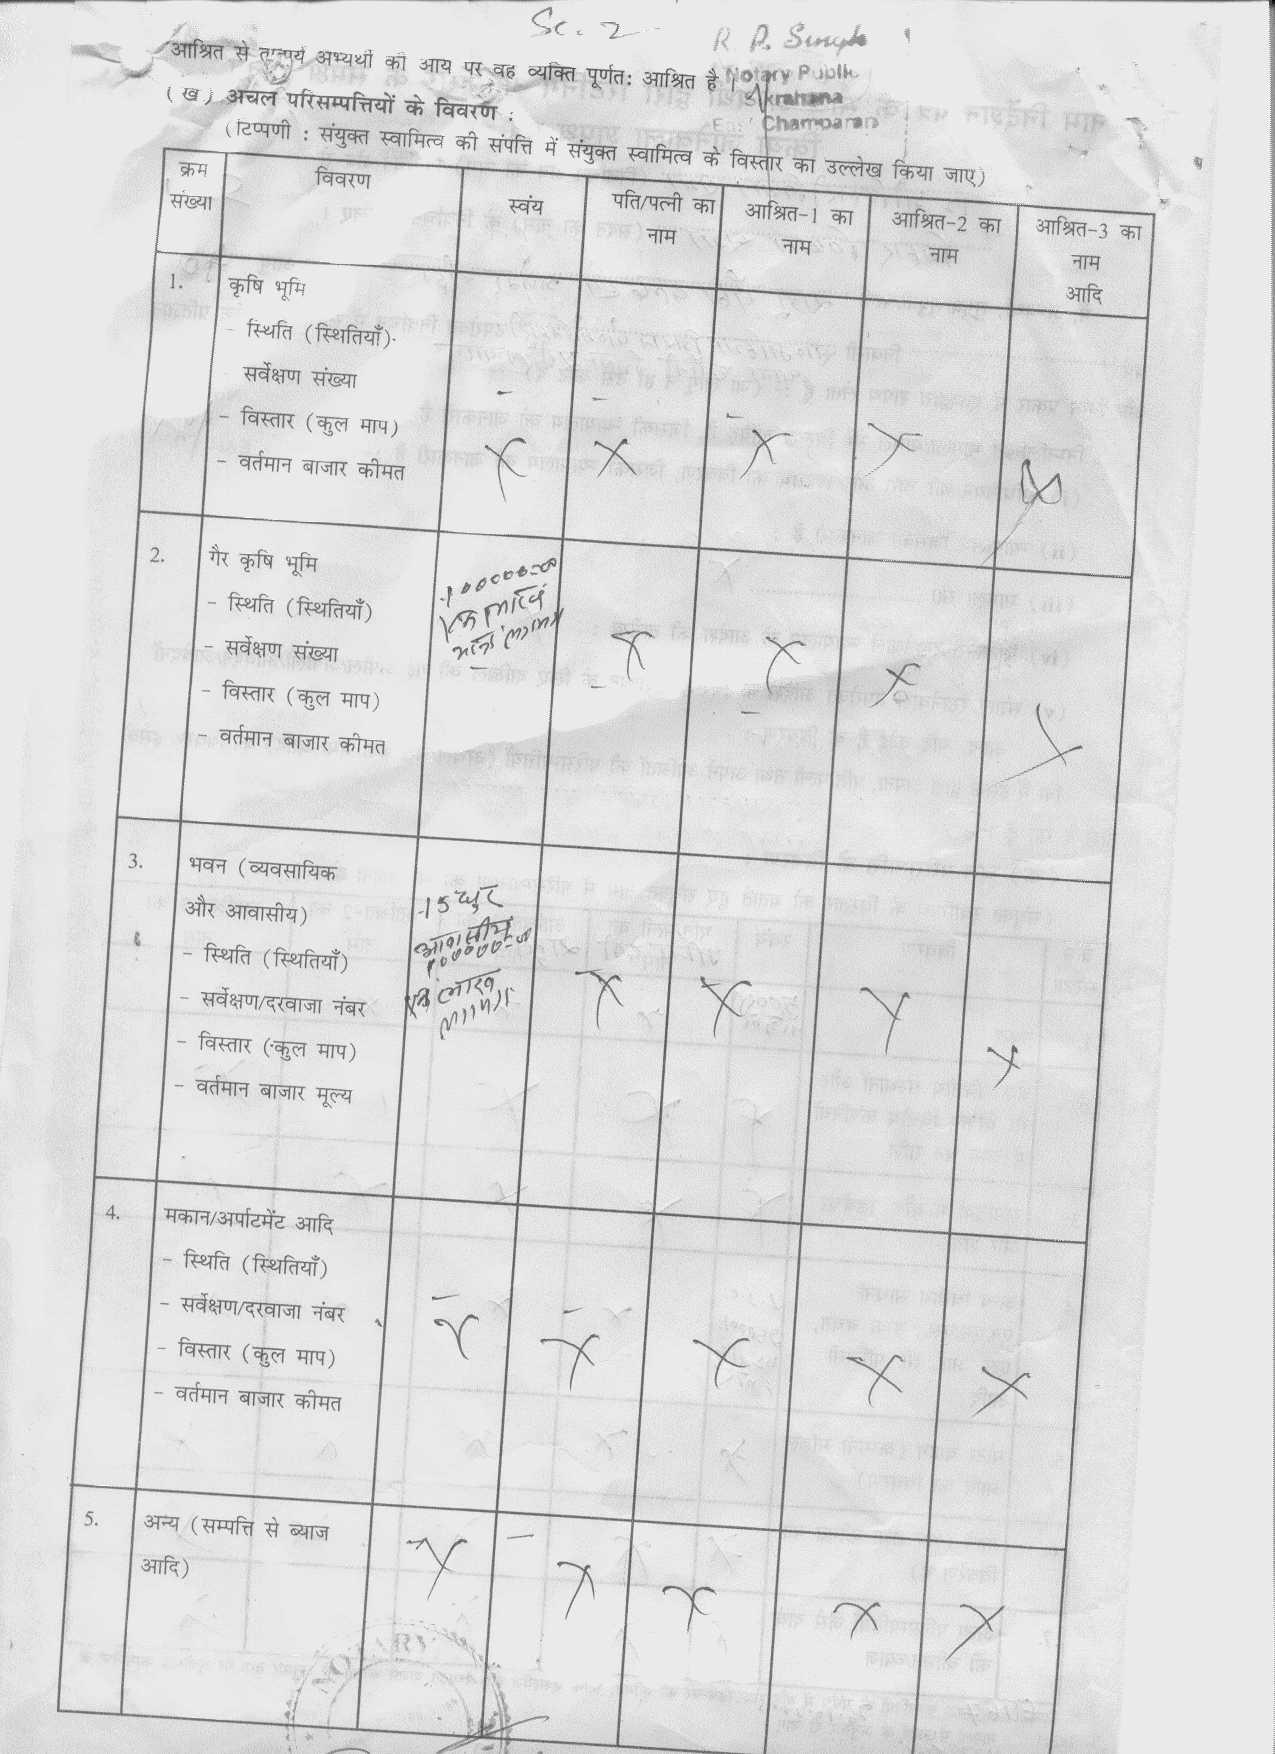 Sc. 2
R P. Singh
आश्रित से तात्पर्य अभ्यर्थी की आय पर वह व्यक्ति पूर्णत: आश्रित है ।
Notary Public
Sikrahana
East Champaran
(ख) अचल परिसम्पत्तियों के विवरण :
(टिप्पणी : संयुक्त स्वामित्व की संपत्ति में संयुक्त स्वामित्व के विस्तार का उल्लेख किया जाए)
क्रम संख्या विवरण स्वंय पति/पत्नी का नाम आश्रित-1 का नाम आश्रित-2 का नाम आश्रित-3 का नाम आदि
1. कृषि भूमि
- स्थिति (स्थितियाँ)
सर्वेक्षण संख्या
- विस्तार (कुल माप)
- वर्तमान बाजार कीमत
X X X X X
2. गैर कृषि भूमि
- स्थिति (स्थितियाँ)
- सर्वेक्षण संख्या
- विस्तार (कुल माप)
- वर्तमान बाजार कीमत
X X X X
3. भवन (व्यवसायिक
और आवासीय)
- स्थिति (स्थितियाँ)
- सर्वेक्षण/दरवाजा नंबर
- विस्तार (कुल माप)
- वर्तमान बाजार मूल्य
15 धुर
आवासीय
X X X X
4. मकान/अर्पाटमेंट आदि
- स्थिति (स्थितियाँ)
- सर्वेक्षण/दरवाजा नंबर
- विस्तार (कुल माप)
- वर्तमान बाजार कीमत
X X X X X
5. अन्य (सम्पत्ति से ब्याज
आदि)
X X X X X